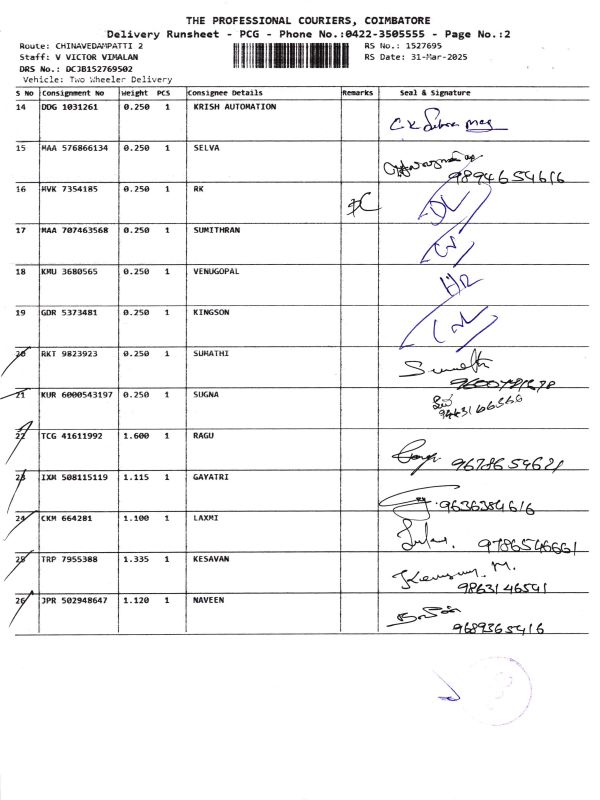 THE PROFESSIONAL COURIERS, COIMBATORE
Delivery Runsheet - PCG - Phone No.:0422-3505555 - Page No.:2
Route: CHINAVEDAMPATTI 2 RS No.: 1527695
Staff: V VICTOR VIMALAN RS Date: 31-Mar-2025
DRS No.: DCJB152769502
Vehicle: Two Wheeler Delivery
S No Consignment No Weight PCS Consignee Details Remarks Seal & Signature
14 DDG 1031261 0.250 1 KRISH AUTOMATION
15 MAA 576866134 0.250 1 SELVA
9894654616
16 HVK 7354185 0.250 1 RK
17 MAA 707463568 0.250 1 SUMITHRAN
18 KMU 3680565 0.250 1 VENUGOPAL
19 GDR 5373481 0.250 1 KINGSON
20 RKT 9823923 0.250 1 SUMATHI
21 KUR 6000543197 0.250 1 SUGNA
22 TCG 41611992 1.600 1 RAGU
9678654621
23 IXM 508115119 1.115 1 GAYATRI
9636384616
24 CKM 664281 1.100 1 LAXMI
9786546661
25 TRP 7955388 1.335 1 KESAVAN
9863146541
26 JPR 502948647 1.120 1 NAVEEN
9689365416